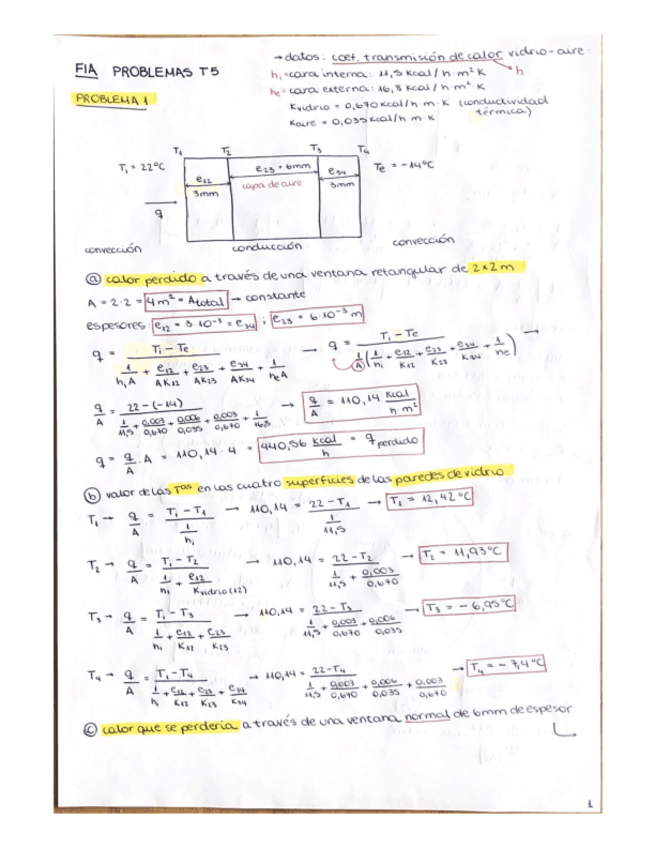 → datos: coef. transmisión de calor vidrio-aire:
FIA PROBLEMAS T5
hi = cara interna: 11,5 kcal/h·m²K → h
he = cara externa: 16,8 kcal/h·m²·K
PROBLEMA 1
Kvidrio = 0,670 kcal/h·m·K (conductividad térmica)
Kaire = 0,035 kcal/h·m·K
T1 T2 T3 T4
Ti = 22ºC e12 3mm e23 = 6mm capa de aire e34 3mm Te = -14ºC
q
convección conducción convección
ⓐ calor perdido a través de una ventana retangular de 2x2 m
A = 2·2 = 4 m² = Atotal → constante
espesores: e12 = 3·10⁻³ = e34 ; e23 = 6·10⁻³ m
q = (Ti - Te) / (1/(hi A) + e12/(A K12) + e23/(A K23) + e34/(A K34) + 1/(he A)) → q = (Ti - Te) / (1/A (1/hi + e12/K12 + e23/K23 + e34/K34 + 1/he))
q/A = (22-(-14)) / (1/11,5 + 0,003/0,670 + 0,006/0,035 + 0,003/0,670 + 1/16,5) → q/A = 110,14 kcal/h·m²
q = q/A · A = 110,14 · 4 = 440,56 kcal/h = q perdido
ⓑ valor de las Tas en las cuatro superficies de las paredes de vidrio
T1 → q/A = (Ti - T1) / (1/hi) → 110,14 = (22 - T1) / (1/11,5) → T1 = 12,42ºC
T2 → q/A = (Ti - T2) / (1/hi + e12/Kvidrio(12)) → 110,14 = (22 - T2) / (1/11,5 + 0,003/0,670) → T2 = 11,93ºC
T3 → q/A = (Ti - T3) / (1/hi + e12/K12 + e23/K23) → 110,14 = (22 - T3) / (1/11,5 + 0,003/0,670 + 0,006/0,035) → T3 = -6,95ºC
T4 → q/A = (Ti - T4) / (1/h + e12/K12 + e23/K23 + e34/K34) → 110,14 = (22 - T4) / (1/11,5 + 0,003/0,670 + 0,006/0,035 + 0,003/0,670) → T4 = -7,4ºC
ⓒ calor que se perdería a través de una ventana normal de 6mm de espesor
1